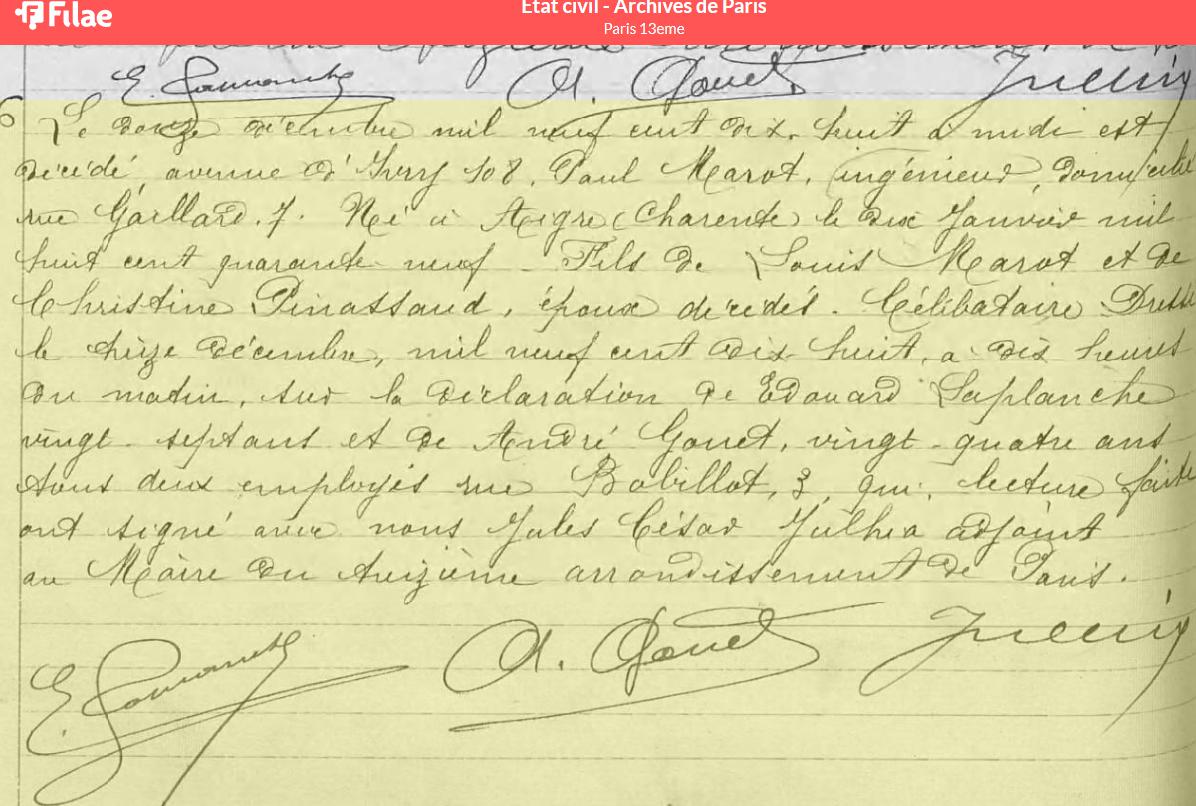 Filae
Etat civil - Archives de Paris
Paris 13eme
A. Gouet
Le douze décembre mil neuf cent dix-huit à midi est
décédé, avenue d'Ivry 108, Paul Marot, ingénieur, domicilié
rue Gaillard, 7. Né à Aigre (Charente) le dix Janvier mil
huit cent quarante neuf - Fils de Louis Marot et de
Christine Pinassaud, époux décédés. Célibataire. Dressé
le treize décembre, mil neuf cent dix-huit, à dix heures
du matin, sur la déclaration de Edouard Laplanche
vingt-sept ans et de André Gouet, vingt-quatre ans
tous deux employés rue Bobillot, 3, qui, lecture faite
ont signé avec nous Jules César Julhia adjoint
au Maire du treizième arrondissement de Paris.
A. Gouet